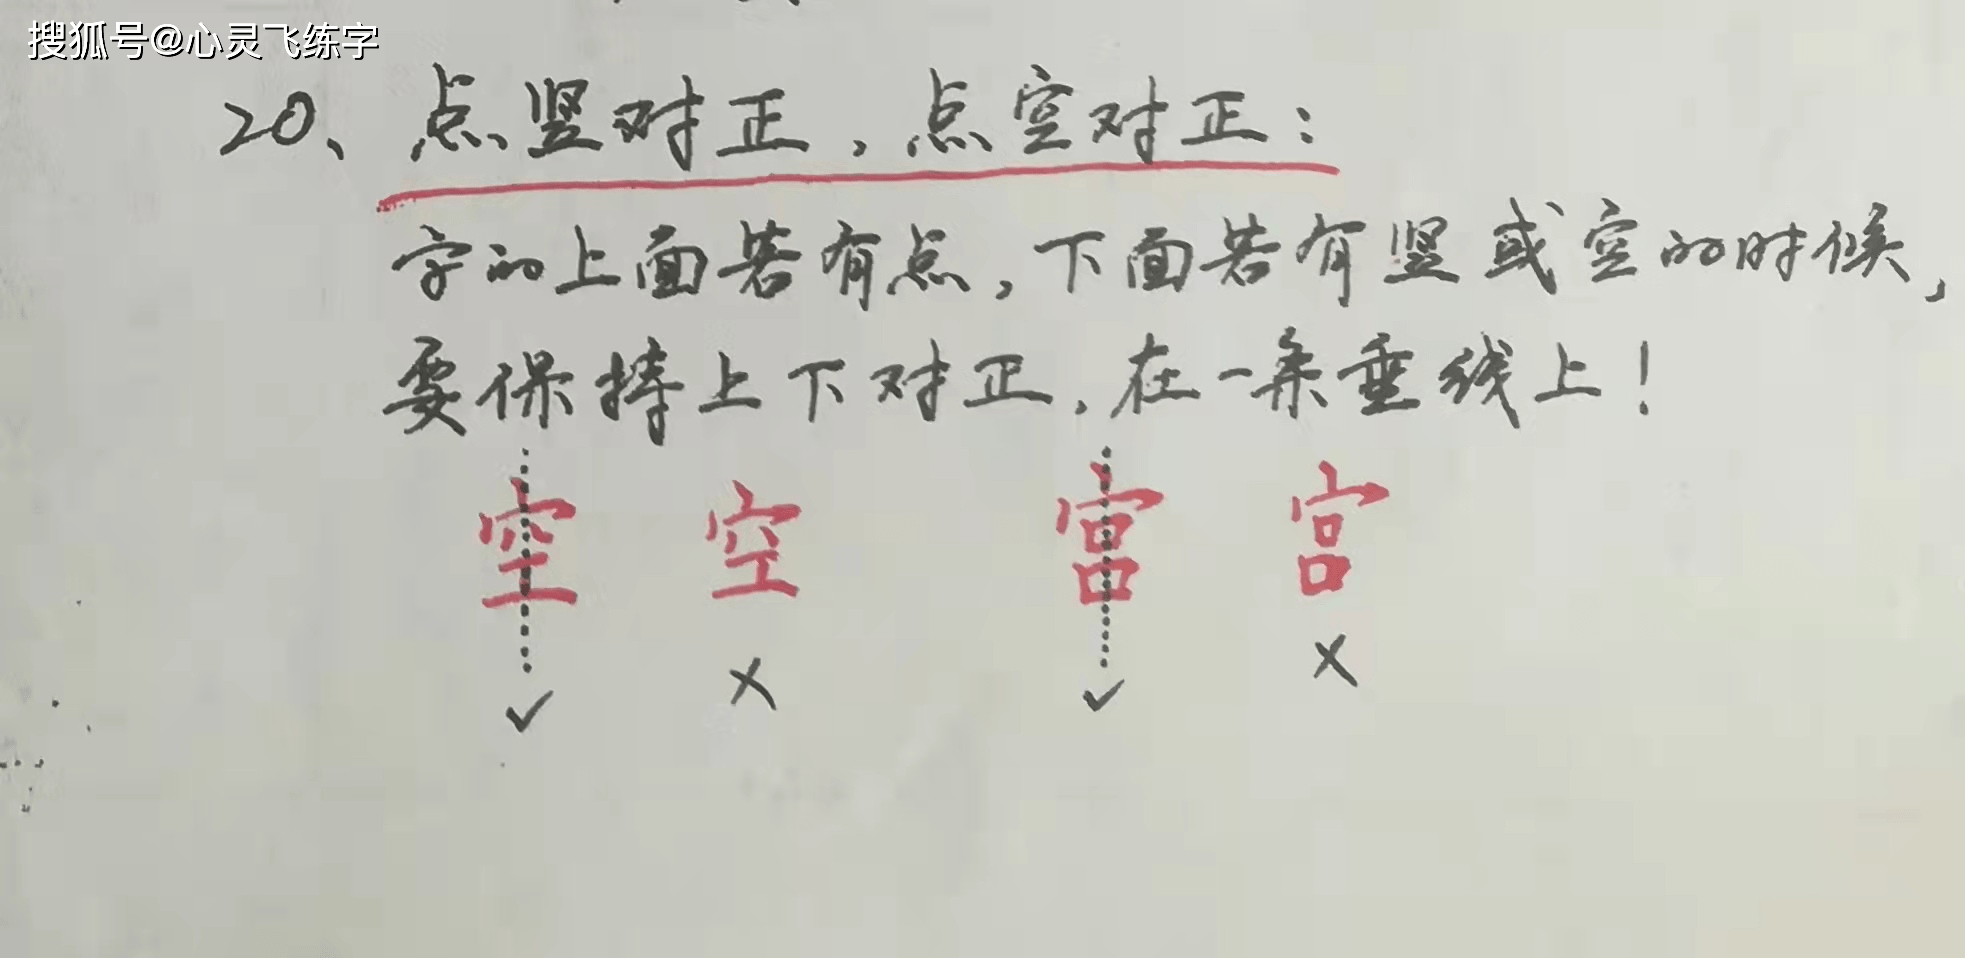 搜狐号@心灵飞练字
20、点竖对正，点空对正：
字的上面若有点，下面若有竖或空的时候，
要保持上下对正，在一条垂线上！
空 空 宫 宫
✓ × ✓ ×